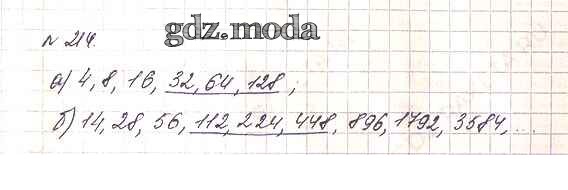 № 214.
gdz.moda
а) 4, 8, 16, 32, 64, 128;
б) 14, 28, 56, 112, 224, 448, 896, 1792, 3584, ...